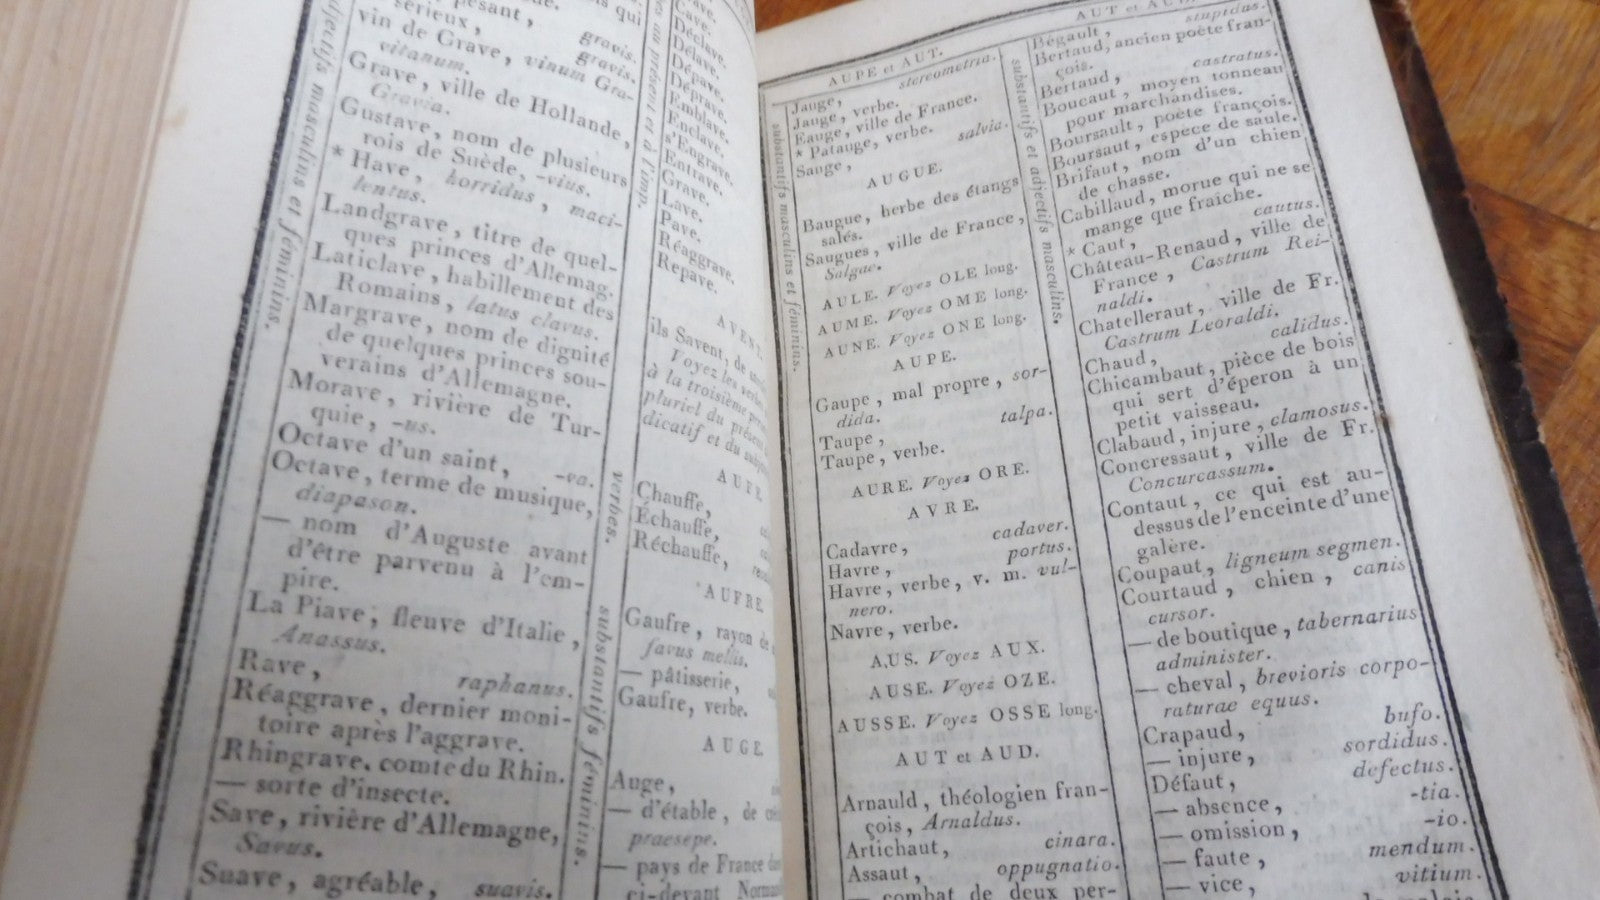 pesant,
sérieux, gravis.
vin de Grave, vinum Gra-
vitanum.
Grave, ville de Hollande,
Gravia.
Gustave, nom de plusieurs
rois de Suède, -vius.
* Have, horridus, maci-
lentus.
Landgrave, titre de quel-
ques princes d'Allemag.
Laticlave, habillement des
Romains, latus clavus.
Margrave, nom de dignité
de quelques princes sou-
verains d'Allemagne.
Morave, rivière de Tur-
quie, -us.
Octave d'un saint, -va.
Octave, terme de musique,
diapason.
— nom d'Auguste avant
d'être parvenu à l'em-
pire.
La Piave, fleuve d'Italie,
Anassus.
Rave, raphanus.
Réaggrave, dernier moni-
toire après l'aggrave.
Rhingrave, comte du Rhin.
— sorte d'insecte.
Save, rivière d'Allemagne,
Savus.
Suave, agréable, suavis.
adjectifs masculins et féminins.
au présent et à l'imp.
Cave.
Déclave.
Délave.
Dépave.
Déprave.
Emblave.
Enclave.
s'Engrave.
Entrave.
Grave.
Lave.
Pave.
Réaggrave.
Repave.
AVENT.
ils Savent, de
Voyez les verbes
à la troisième
pluriel du présent
dicatif et du
verbes.
Chauffe,
Échauffe,
Réchauffe,
AUFRE.
Gaufre, rayon de
favus mellis.
— pâtisserie,
Gaufre, verbe.
AUGE.
Auge,
— d'étable, de
praesepe.
— pays de France
ci-devant
substantifs féminins.
AUPE et AUT.
Jauge, stereometria.
Jauge, verbe.
Eauge, ville de France.
* Patauge, verbe.
Sauge, salvia.
AUGUE.
Baugue, herbe des étangs
salés.
Saugues, ville de France,
Salgac.
AULE. Voyez OLE long.
AUME. Voyez OME long.
AUNE. Voyez ONE long.
AUPE.
Gaupe, mal propre, sor-
dida.
Taupe, talpa.
Taupe, verbe.
AURE. Voyez ORE.
AVRE.
Cadavre, cadaver.
Havre, portus.
Havre, verbe, v. m. vul-
nero.
Navre, verbe.
AUS. Voyez AUX.
AUSE. Voyez OZE.
AUSSE. Voyez OSSE long.
AUT et AUD.
Arnauld, théologien fran-
çois, Arnaldus.
Artichaut, cinara.
Assaut, oppugnatio.
— combat de deux per-
substantifs masculins et féminins.
AUT et AUD.
Bégault, stupidus.
Bertaud, ancien poète fran-
çois.
Bertaud, castratus.
Boucaut, moyen tonneau
pour marchandises.
Boursault, poète françois.
Boursaut, espèce de saule.
Brifaut, nom d'un chien
de chasse.
Cabillaud, morue qui ne se
mange que fraîche.
* Caut, cautus.
Château-Renaud, ville de
France, Castrum Rei-
naldi.
Chatelleraut, ville de Fr.
Castrum Leoraldi.
Chaud, calidus.
Chicambaut, pièce de bois
qui sert d'éperon à un
petit vaisseau.
Clabaud, injure, clamosus.
Concressaut, ville de Fr.
Concurcassum.
Contaut, ce qui est au-
dessus de l'enceinte d'une
galère.
Coupaut, ligneum segmen.
Courtaud, chien, canis
cursor.
— de boutique, tabernarius
administer.
— cheval, brevioris corpo-
raturae equus.
Crapaud, bufo.
— injure, sordidus.
Défaut, defectus.
— absence, -tia.
— omission, -io.
— faute, mendum.
— vice, vitium.
substantifs et adjectifs masculins.